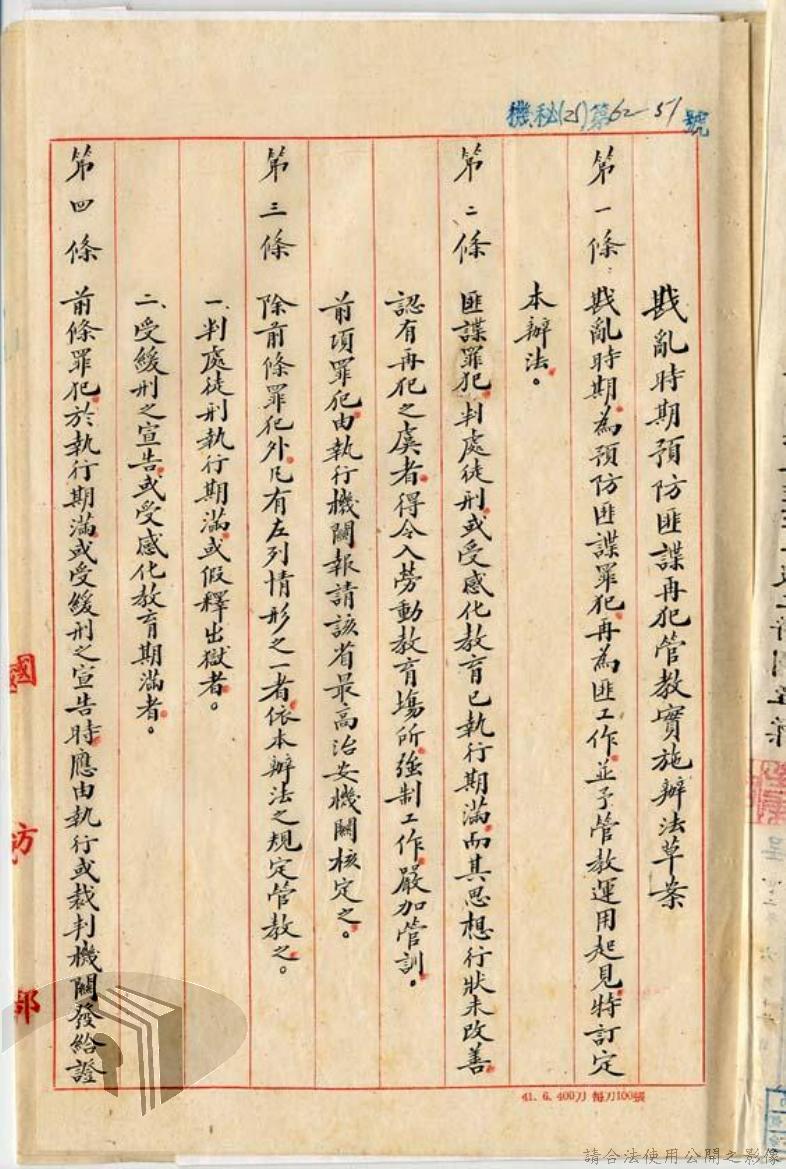 機秘(21)第62-51號
戡亂時期預防匪諜再犯管教實施辦法草案
第一條 戡亂時期為預防匪諜罪犯再為匪工作並予管教運用起見特訂定
本辦法。
第二條 匪諜罪犯判處徒刑或受感化教育已執行期滿而其思想行狀未改善
認有再犯之虞者得令入勞動教育場所強制工作嚴加管訓。
前項罪犯由執行機關報請該省最高治安機關核定之。
第三條 除前條罪犯外凡有左列情形之一者依本辦法之規定管教之。
一、判處徒刑執行期滿或假釋出獄者。
二、受緩刑之宣告或受感化教育期滿者。
第四條 前條罪犯於執行期滿或受緩刑之宣告時應由執行或裁判機關發給證
國防部
41. 6. 400刀 每刀100張
請合法使用公開之影像